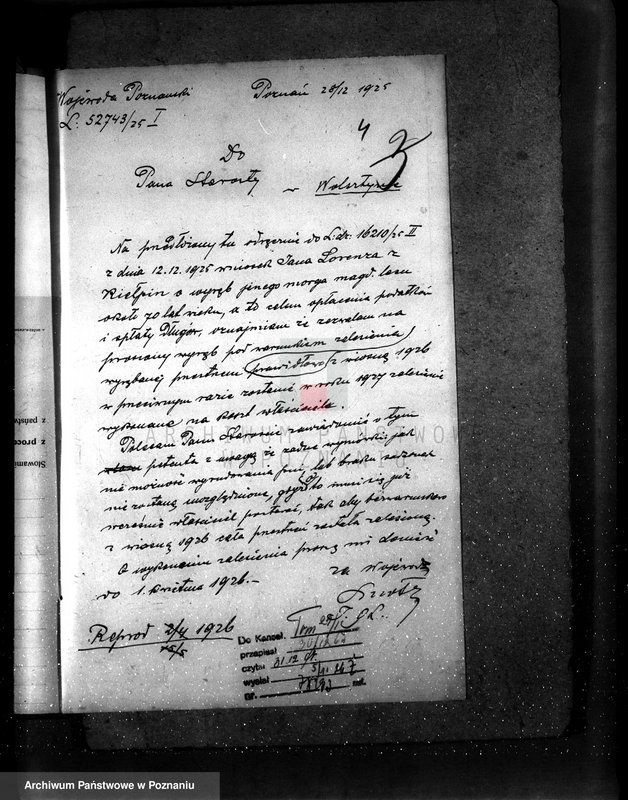 Wojewoda Poznański
L: 52743/25 I
Poznań 28/12 1925
4
Do
Pana Starosty w Wolsztynie
Na przedłożony tu odręcznie do L:dz. 16210/25 II
z dnia 12.12.1925 wniosek Jana Lorenza z
Kiełpin o wyrąb jednego morga magd. lasu
około 70 lat wieku, a to celem opłacenia podatków
i spłaty długów, oznajmiam że zezwalam na
proszony wyrąb pod warunkiem zalesienia
wyrębanej przestrzeni prawidłowo z wiosną 1926
w przeciwnym razie zostanie w roku 1927 zalesienie
wykonane na koszt właściciela.
Polecam Panu Staroście zawiadomić o tym
petenta z uwagą że żadne wymówki jak
niemożność wyrudowania pni, lub braku sadzonek
nie zostaną uwzględnione, gdyż o to musi się już
wcześnie właściciel postarać, tak aby bezwarunkowo
z wiosną 1926 cała przestrzeń została zalesioną.
O wykonaniu zalesienia proszę mi donieść
do 1. kwietnia 1926.-
za Wojewodę
Reprod 2/4 1926
15/5
Do Kancel.
przepisał 30/12 25
czytał 31.12
wysłał
Nr.
zł.
ARCHIWUM PAŃSTWOWE
W POZNANIU
z państw
z proce
Słowami
Archiwum Państwowe w Poznaniu